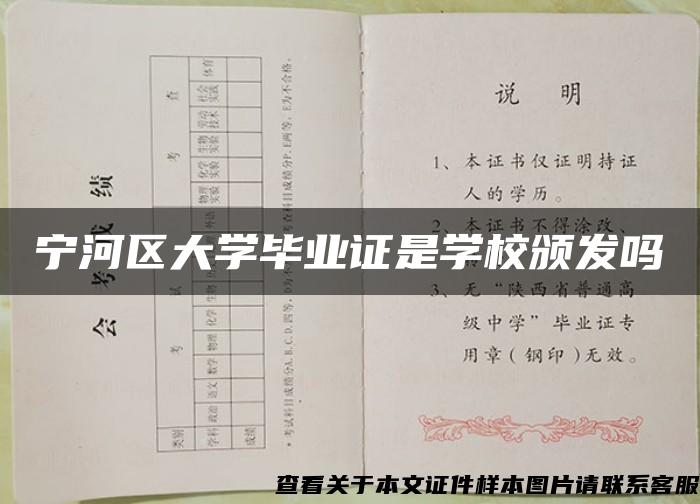 会考成绩
类别 考试 考查
学科 政治 语文 数学 物理 化学 生物 外语 物理实验 化学实验 生物实验 劳动技术 社会实践 体育
成绩
说 明
1、本证书仅证明持证
人的学历。
2、本证书不得涂改、
宁河区大学毕业证是学校颁发吗
3、无“陕西省普通高
级中学”毕业证专
用章(钢印)无效。
查看关于本文证件样本图片请联系客服